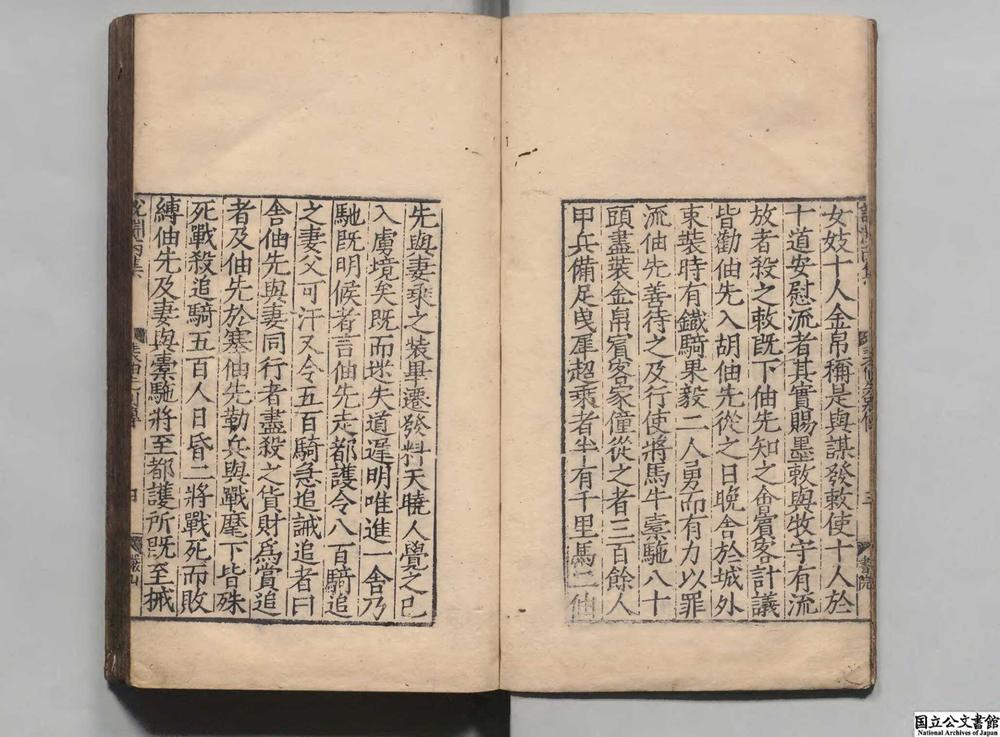 女妓十人金帛稱是與謀發敕使十人於
十道安慰流者其實賜墨敕與牧守有流
放者殺之敕既下伷先知之會賓客計議
皆勸伷先入胡伷先從之日晚舍於城外
束裝時有鐵騎果毅二人勇而有力以罪
流伷先善待之及行使將馬牛槖駞八十
頭盡裝金帛賓客家僮從之者三百餘人
甲兵備足曳犀超乘者半有千里馬二伷
先與妻乘之裝畢還發料天曉人覺之已
入虜境矣既而迷失道遲明唯進一舍乃
馳既明候者言伷先走都護令八百騎追
之妻父可汗又令五百騎急追誡追者曰
舍伷先與妻同行者盡殺之貨財爲賞追
者及伷先於塞伷先勒兵與戰麾下皆殊
死戰殺追騎五百人日昏二將戰死而敗
縛伷先及妻與槖駞將至都護所既至械
說淵丙集
四
嚴山
国立公文書館
National Archives of Japan